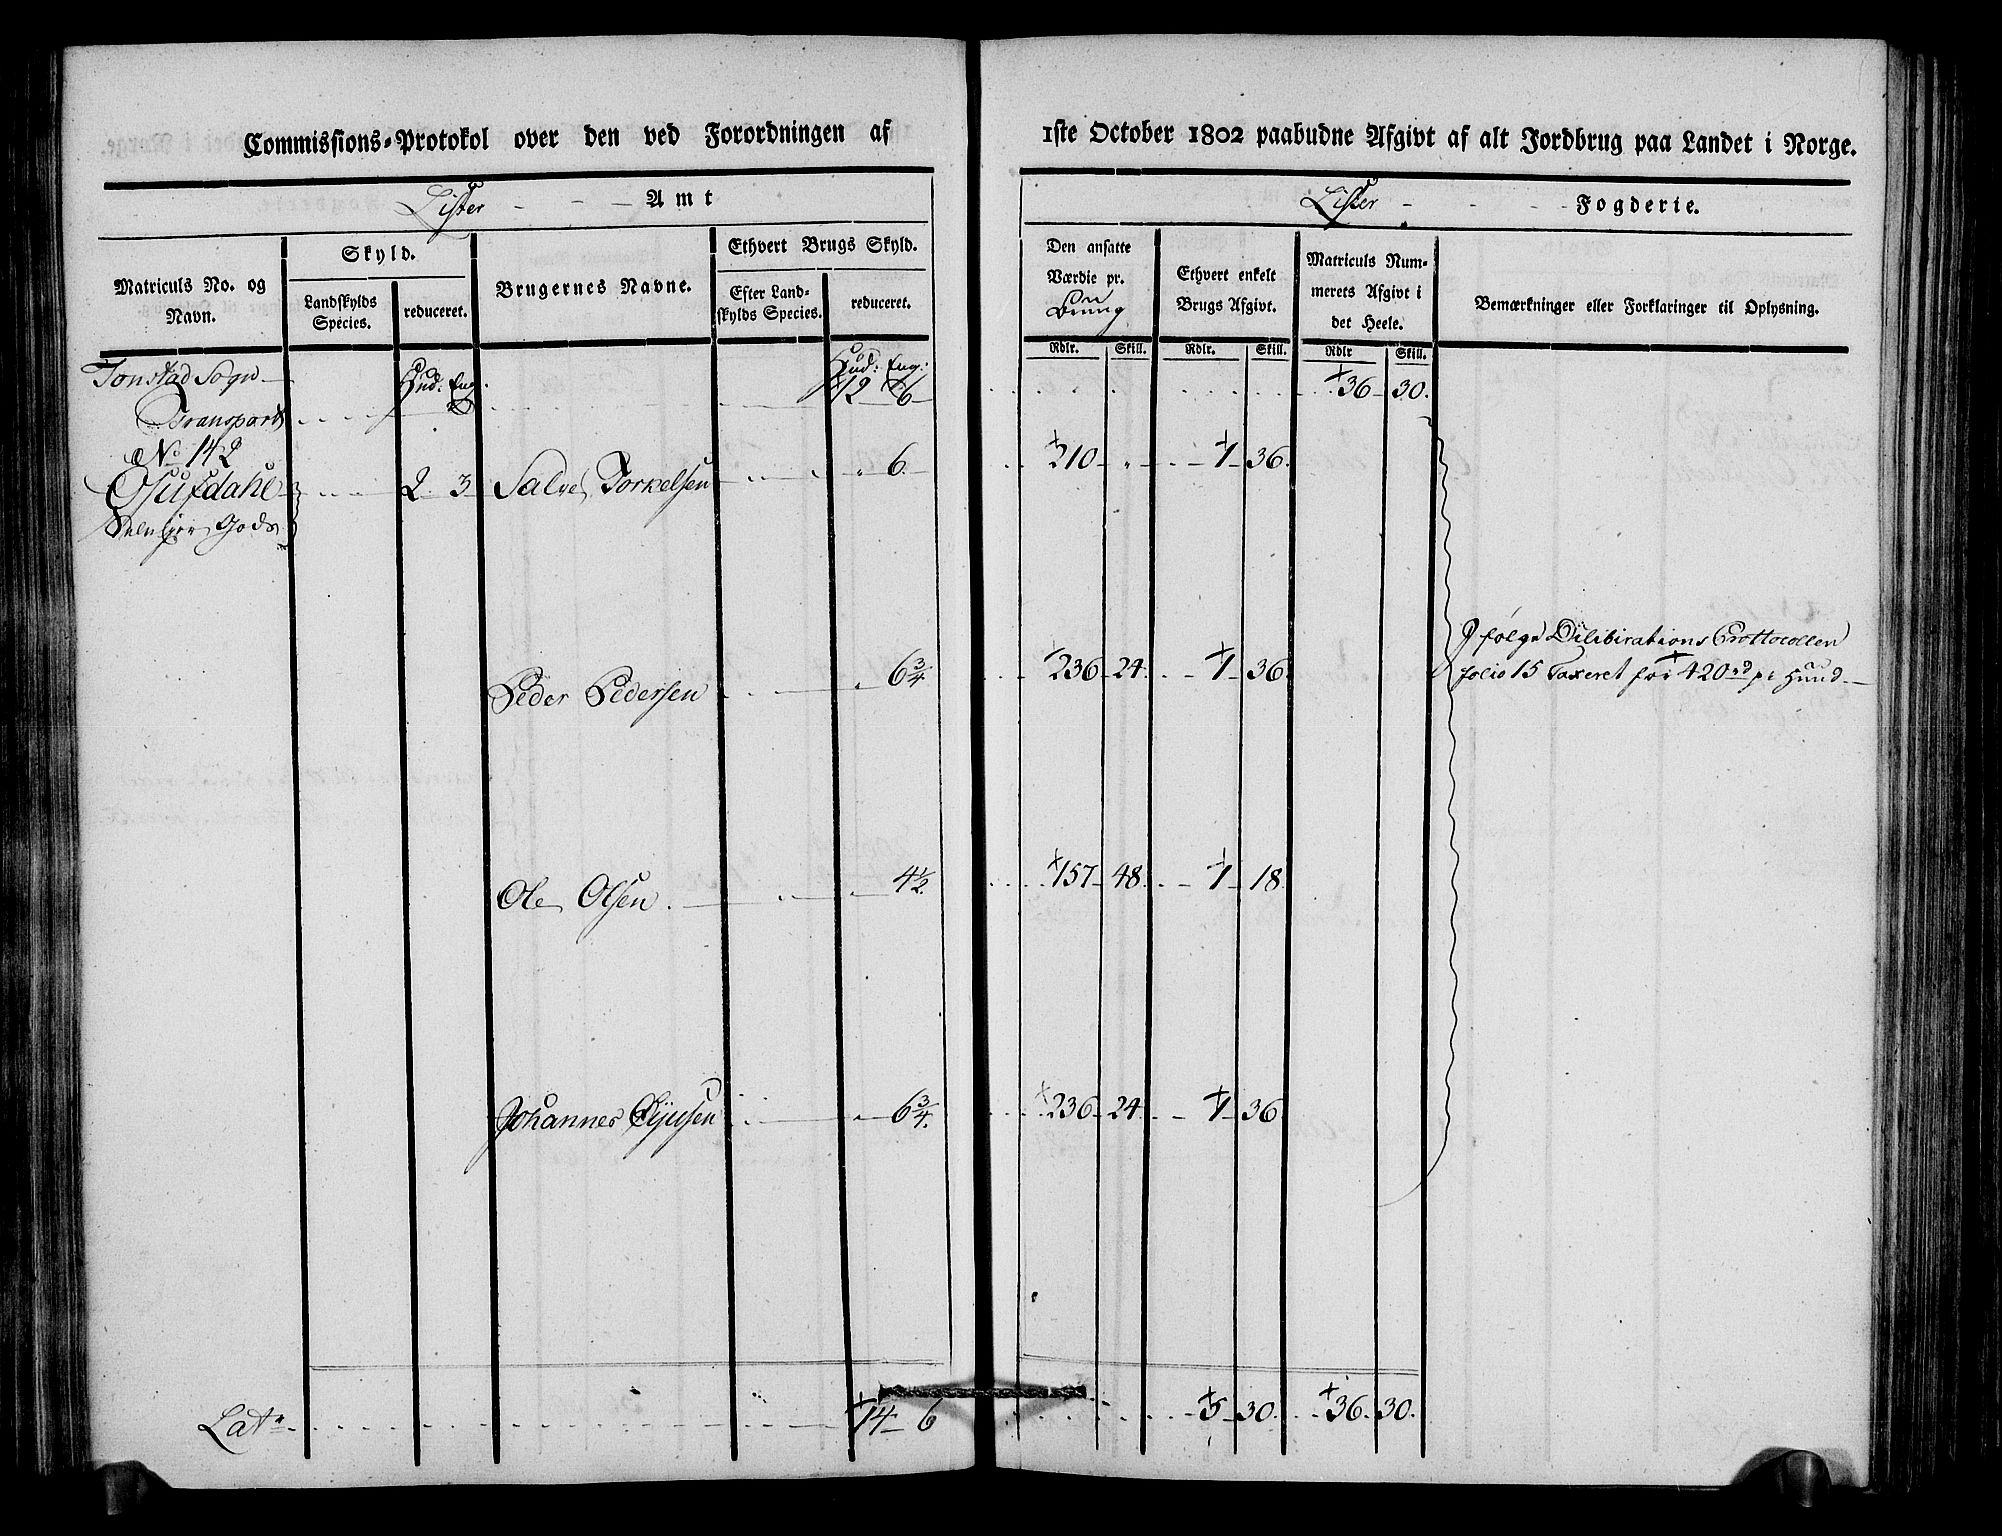 Commissions-Protokol over den ved Forordningen af 1ste October 1802 paabudne Afgivt af alt Jordbrug paa Landet i Norge.
Lister - - - Amt
Lister - - - Fogderie.
Matriculs No. og Navn.
Skyld.
Landskylds Species.
reduceret.
Brugernes Navne.
Ethvert Brugs Skyld.
Efter Landskylds Species.
reduceret.
Den ansatte Værdie pr.
Ethvert enkelt Brugs Afgivt.
Matriculs Nummerets Afgivt i det Heele.
Bemærkninger eller Forklaringer til Oplysning.
Rdlr. Skill. Rdlr. Skill. Rdlr Skill.
Tonstad Sogn
Hud: Eng. Hud: Eng:
Transport 12 6 36 30.
No 142
2 3 Salve Torkelsen 6. 210 1 36.
Gods
Peder Pedersen 6 3/4 236 24 1 36.
folge Delibirations Prottocollen
folio 15 Taxeret for 420 rd pr Huud
Ole Olsen 4 1/2 157 48 1 18
Johannes 6 3/4 236 24 1 36
Lat. 14 6 5 30. 36 30.